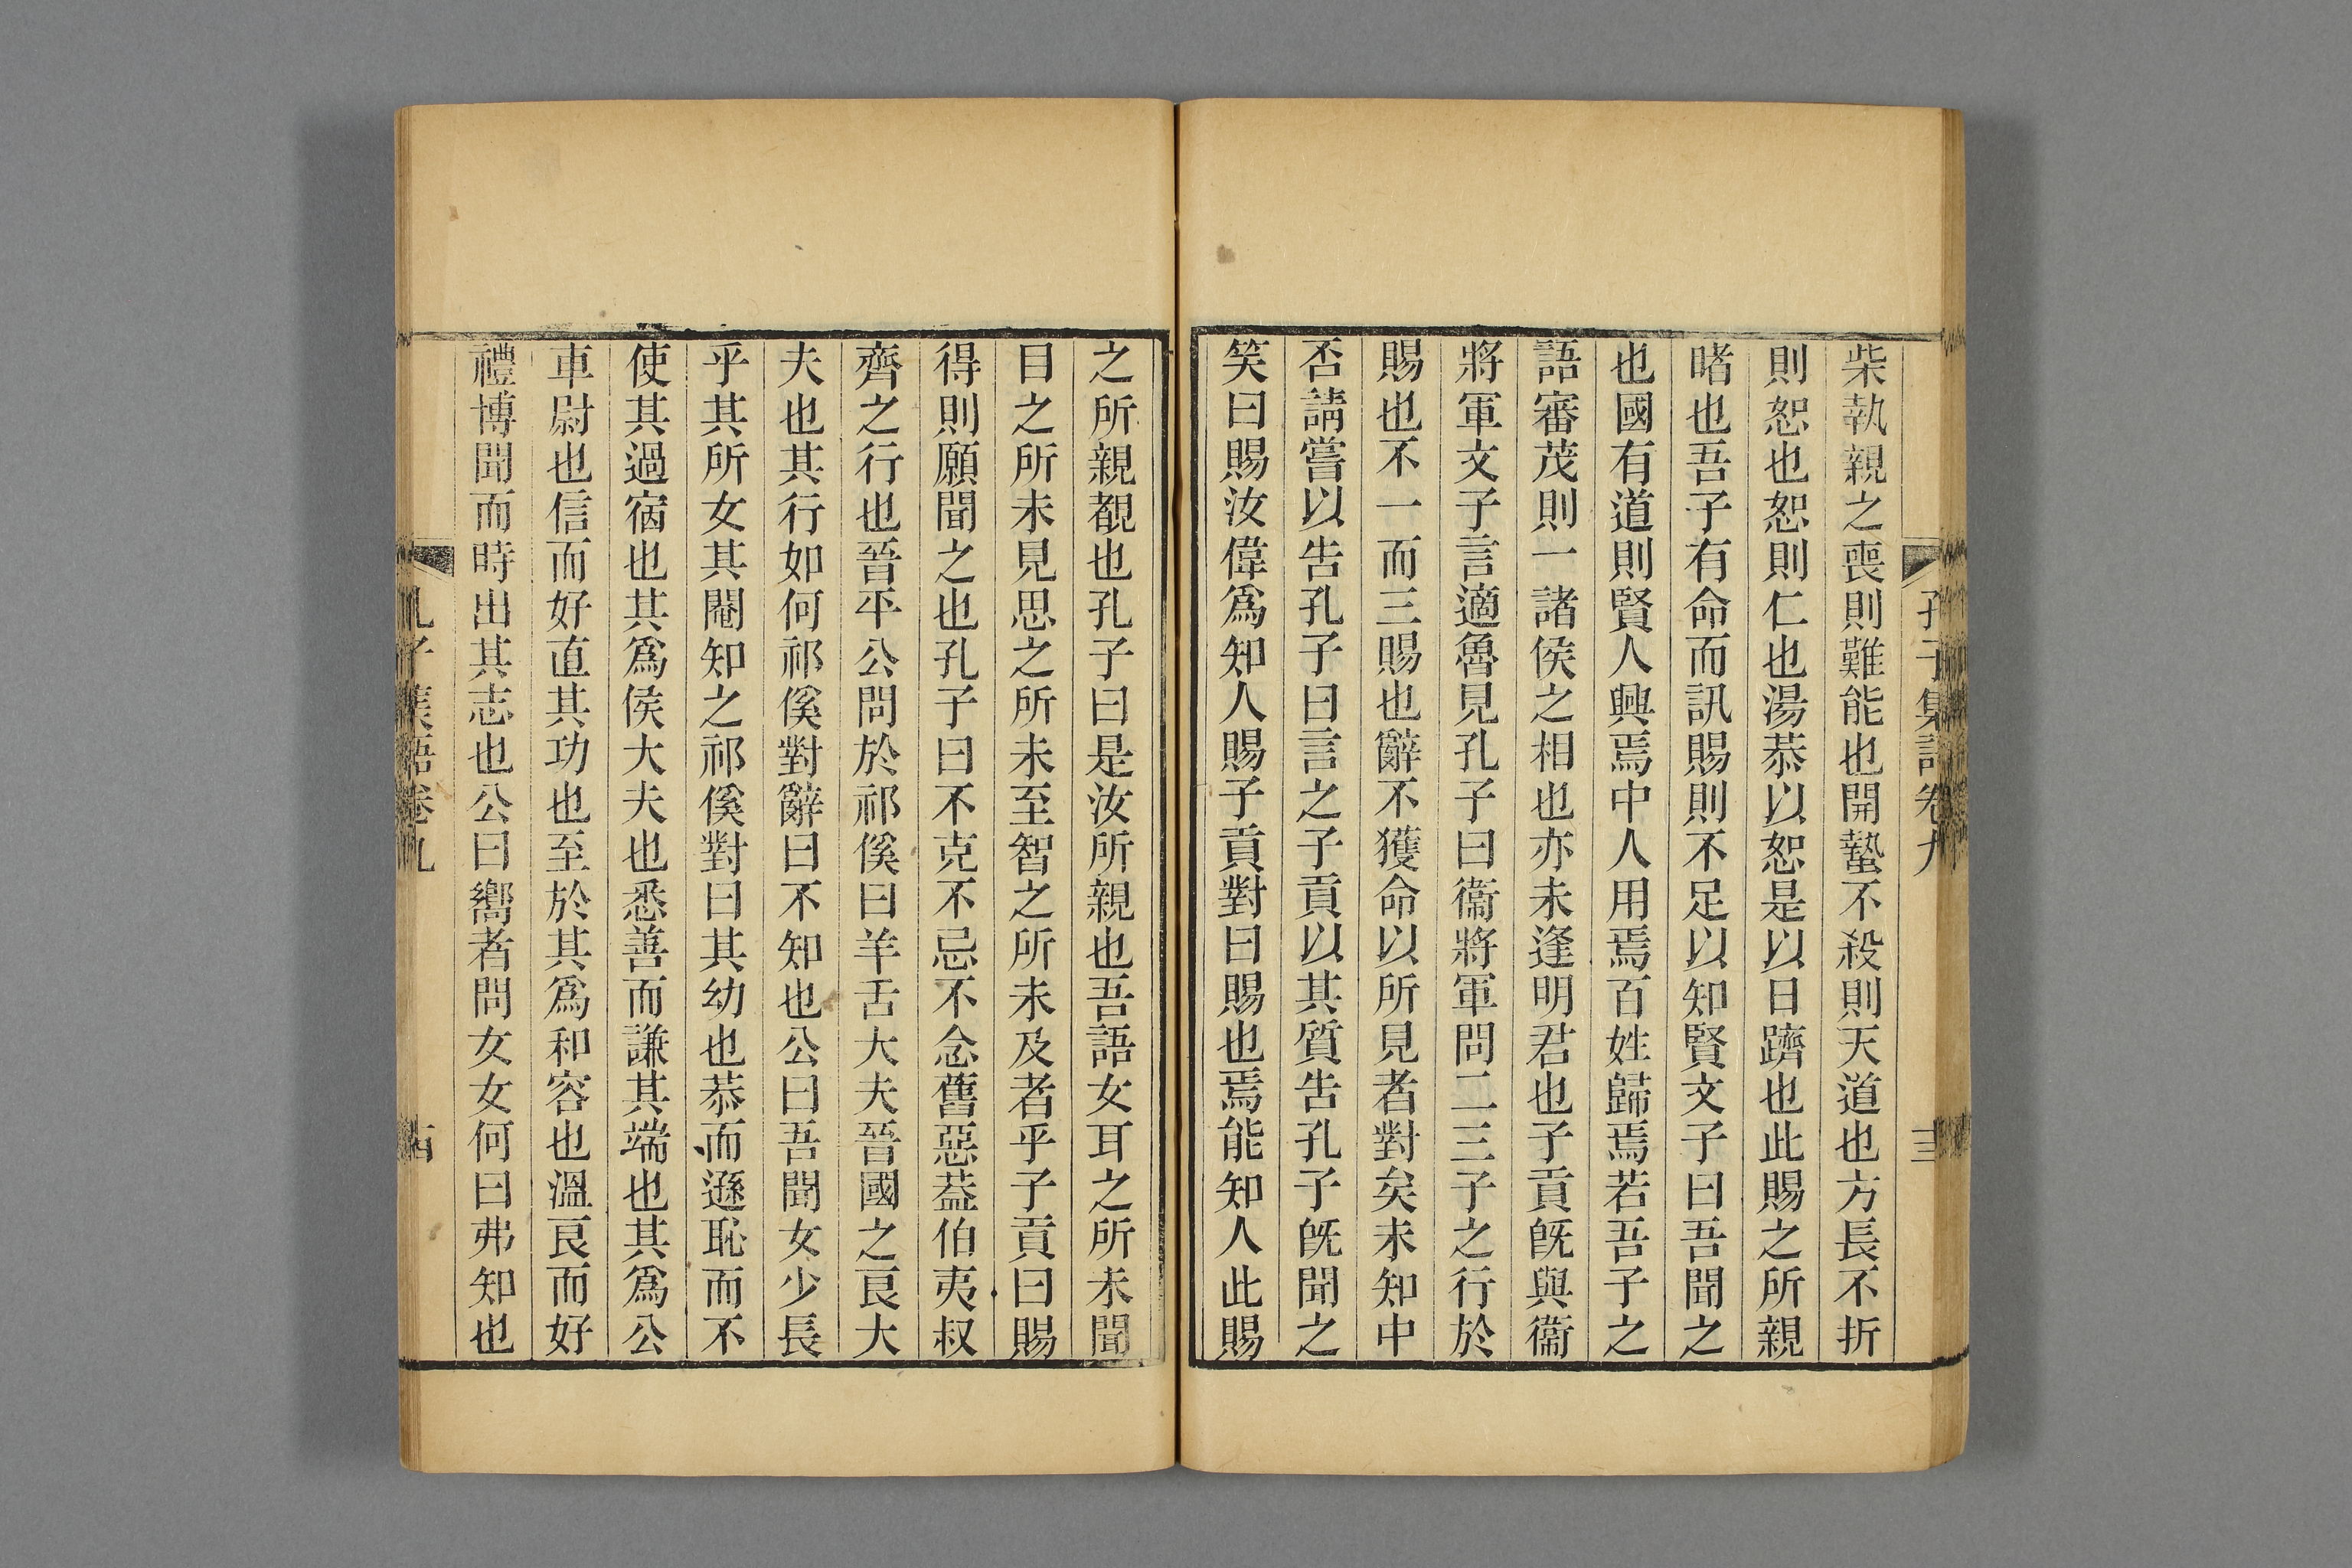 孔子集語卷九
柴執親之喪則難能也開蟄不殺則天道也方長不折
則恕也恕則仁也湯恭以恕是以日躋也此賜之所親
睹也吾子有命而訊賜則不足以知賢文子曰吾聞之
也國有道則賢人興焉中人用焉百姓歸焉若吾子之
語審茂則一諸侯之相也亦未逢明君也子貢既與衞
將軍文子言適魯見孔子曰衞將軍問二三子之行於
賜也不一而三賜也辭不獲命以所見者對矣未知中
否請嘗以告孔子曰言之子貢以其質告孔子既聞之
笑曰賜汝偉爲知人賜子貢對曰賜也焉能知人此賜
之所親覩也孔子曰是汝所親也吾語女耳之所未聞
目之所未見思之所未至智之所未及者乎子貢曰賜
得則願聞之也孔子曰不克不忌不念舊惡葢伯夷叔
齊之行也晉平公問於祁傒曰羊舌大夫晉國之良大
夫也其行如何祁傒對辭曰不知也公曰吾聞女少長
乎其所女其閹知之祁傒對曰其幼也恭而遜恥而不
使其過宿也其爲侯大夫也悉善而謙其端也其爲公
車尉也信而好直其功也至於其爲和容也溫良而好
禮博聞而時出其志也公曰嚮者問女女何曰弗知也
孔子集語卷九